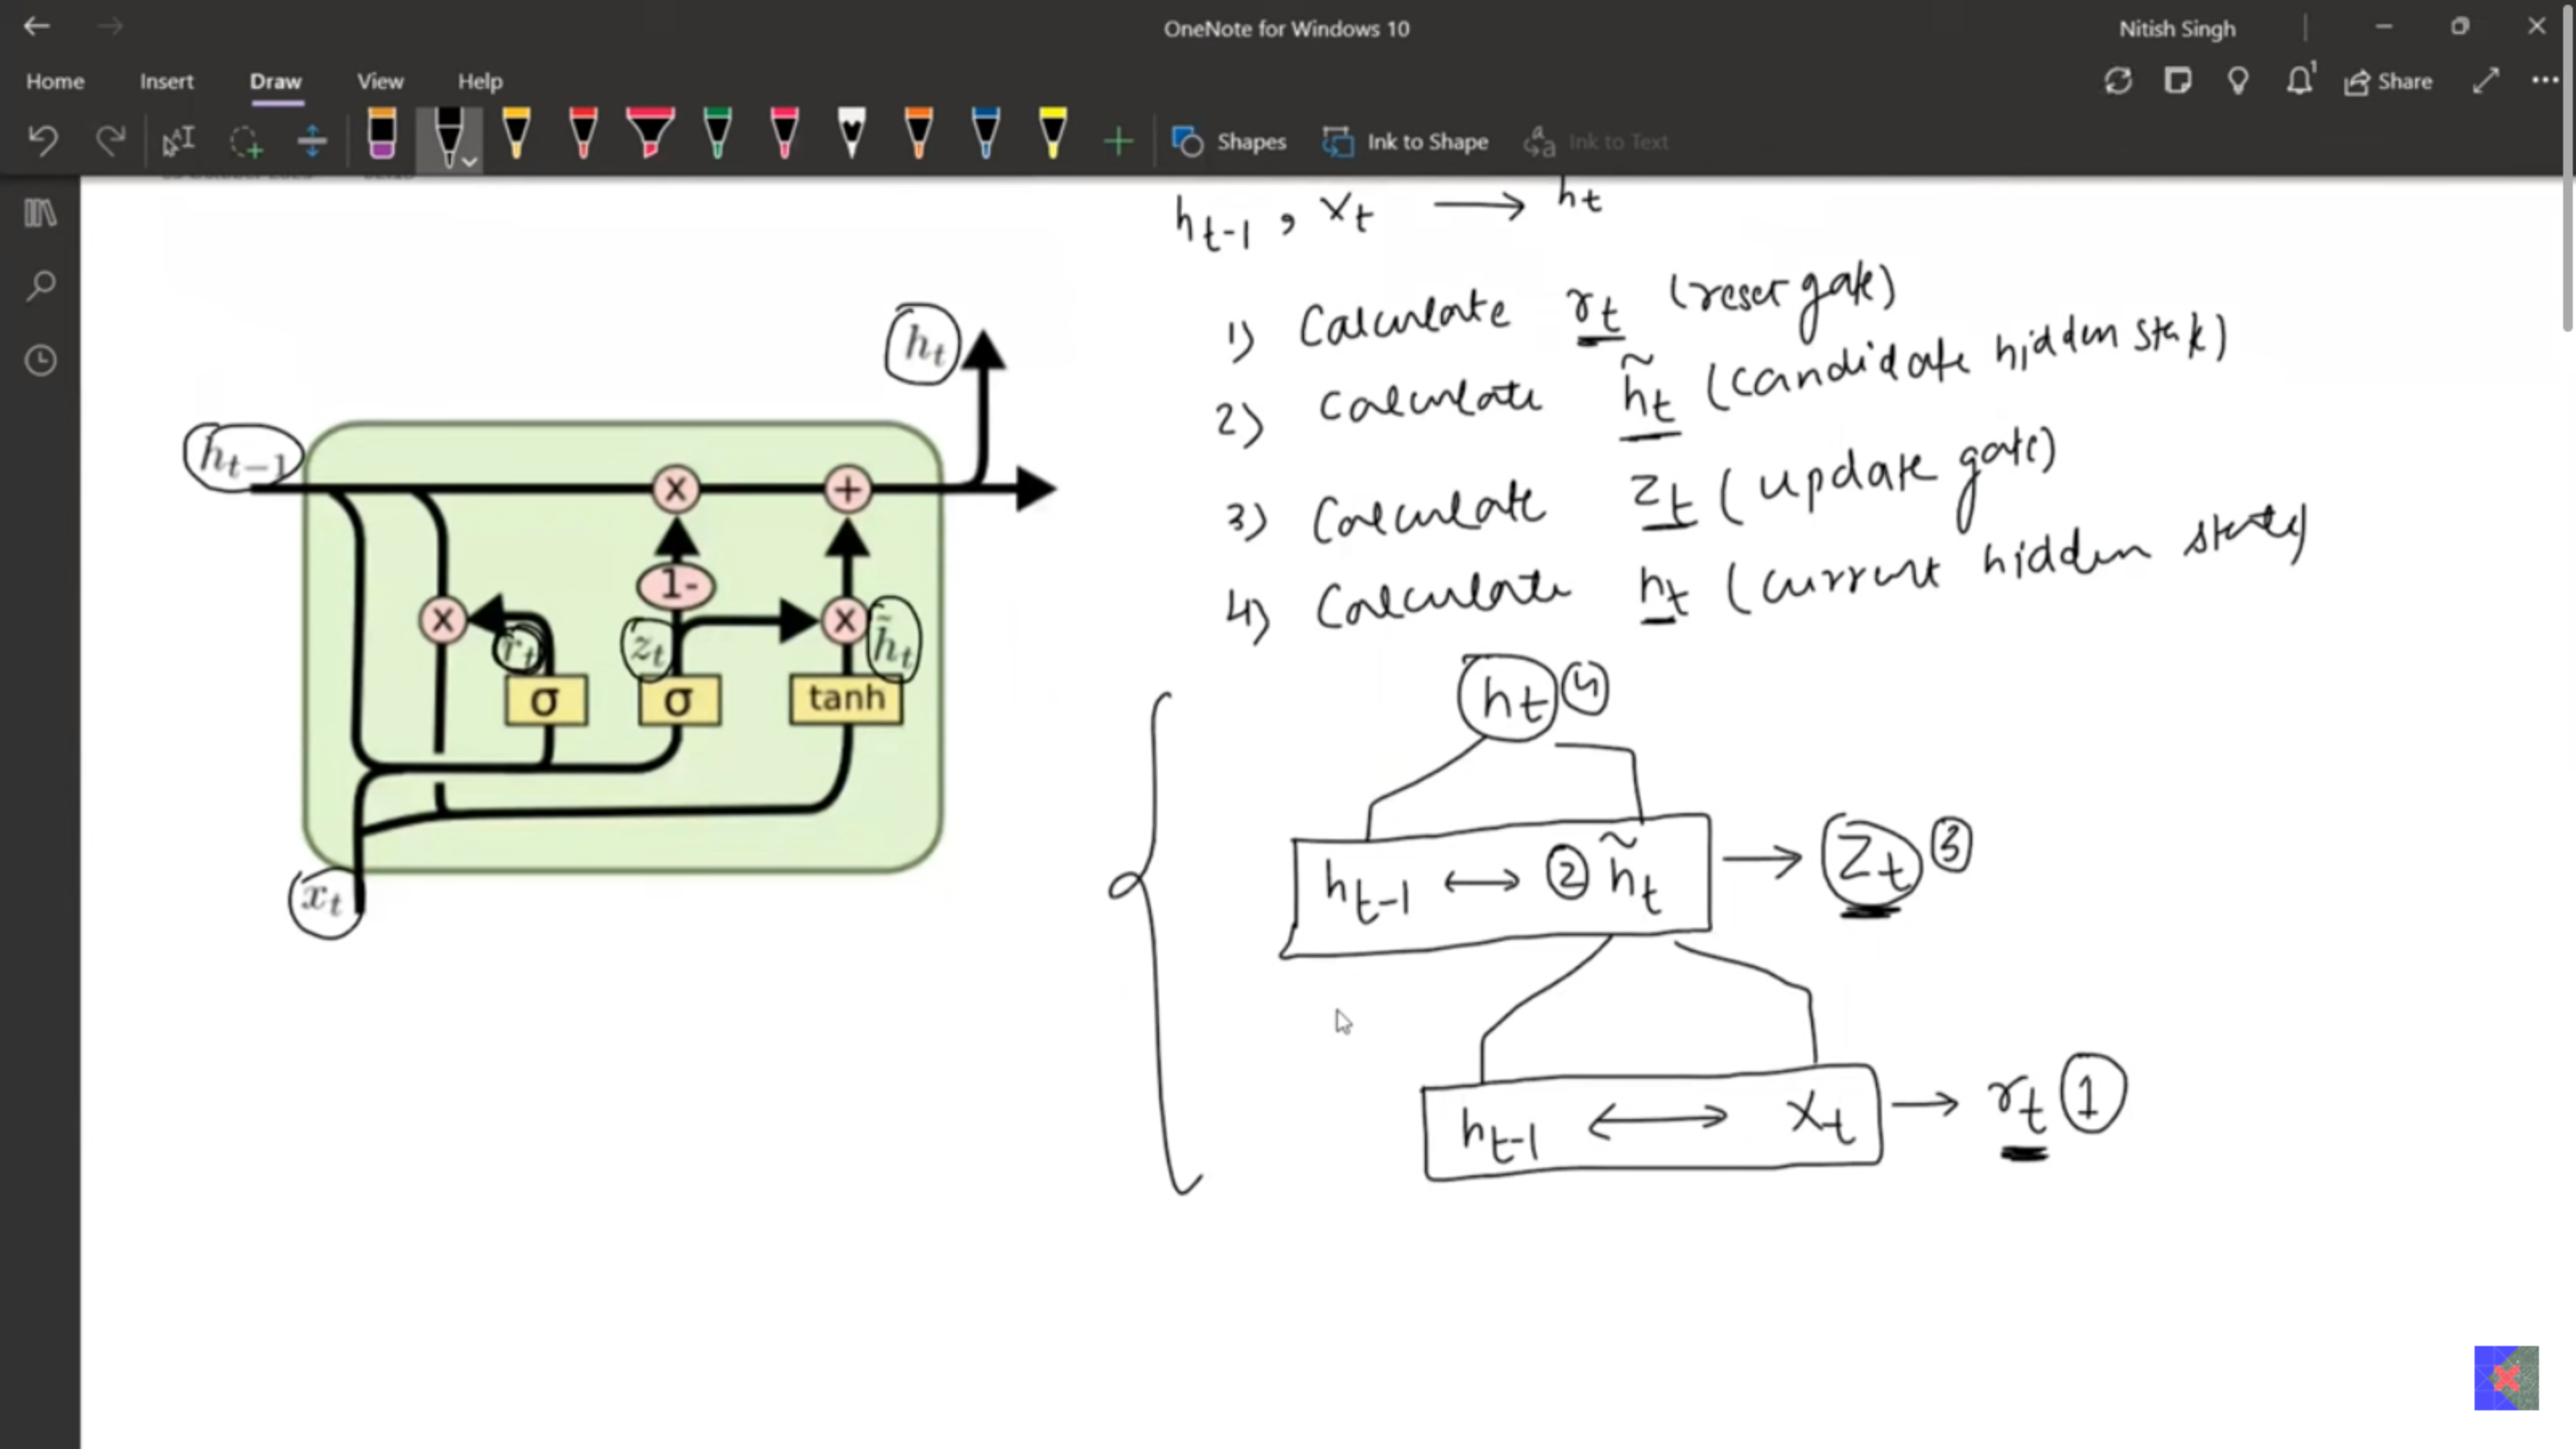 OneNote for Windows 10
Nitish Singh
Home Insert Draw View Help
1
Share
Shapes Ink to Shape Ink to Text
h_{t-1}, x_t → h_t
1) Calculate r_t (reset gate)
2) Calculate h̃_t (candidate hidden state)
3) Calculate z_t (update gate)
4) Calculate h_t (current hidden state)
h_t
h_{t-1}
x +
1-
x r_t z_t x h̃_t
σ σ tanh
x_t
h_t ④
h_{t-1} ↔ ② h̃_t → z_t ③
h_{t-1} ↔ x_t → r_t ①